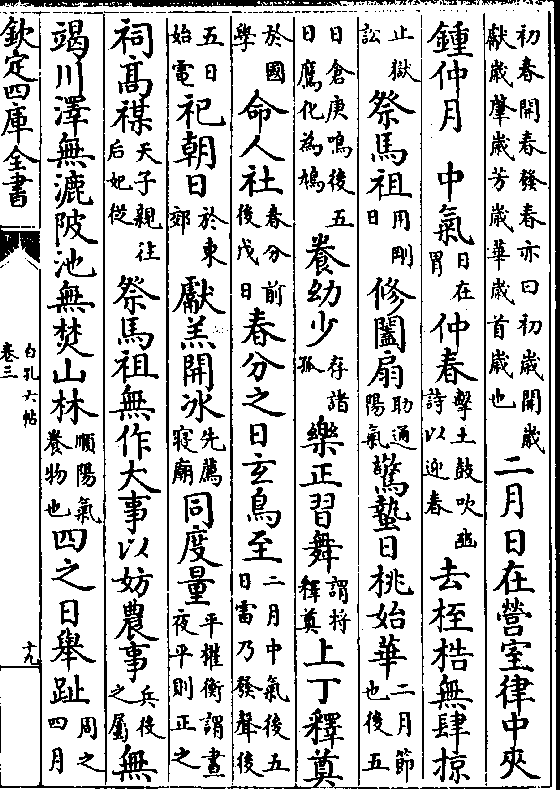 初春開春發春亦曰初歲開歲
獻歲肇歲芳歲華歲首歲也
二月日在營室律中夾
鍾仲月　中氣
日在
胃
仲春
擊土鼓吹豳
詩以迎春
去桎梏無肆掠
止獄
訟
祭馬祖
用剛
日
修闔扇
助通
陽氣
驚蟄日桃始華
二月節
也後五
日倉庚鳴後五
日鷹化為鳩
養幼少
存諸
孤
樂正習舞
謂將
釋奠
上丁釋奠
於國
學
命人社
春分前
後戊日
春分之日玄鳥至
二月中氣後五
日雷乃發聲後
五日
始電
祀朝日
於東
郊
獻羔開冰
先薦
寢廟
同度量
平權衡謂晝
夜平則正之
祠高禖
天子親往
后妃從
祭馬祖無作大事以妨農事
兵後
之屬
無
竭川澤無漉陂池無焚山林
順陽氣
養物也
四之日舉趾
周之
四月
欽定四庫全書
白孔六帖
卷三
十九